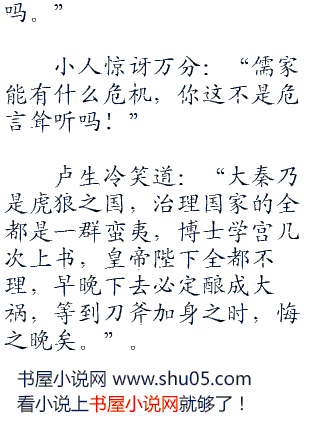 吗。”
小人惊讶万分：“儒家
能有什么危机，你这不是危
言耸听吗！”
卢生冷笑道：“大秦乃
是虎狼之国，治理国家的全
都是一群蛮夷，博士学宫几
次上书，皇帝陛下全都不
理，早晚下去必定酿成大
祸，等到刀斧加身之时，悔
之晚矣。”。
书屋小说网 www.shu05.com
看小说上书屋小说网就够了！